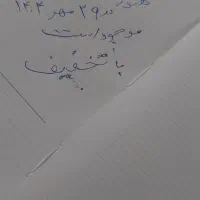 در ۲۹ مهر ۱۴۰۴
موجود است
با تخفیف